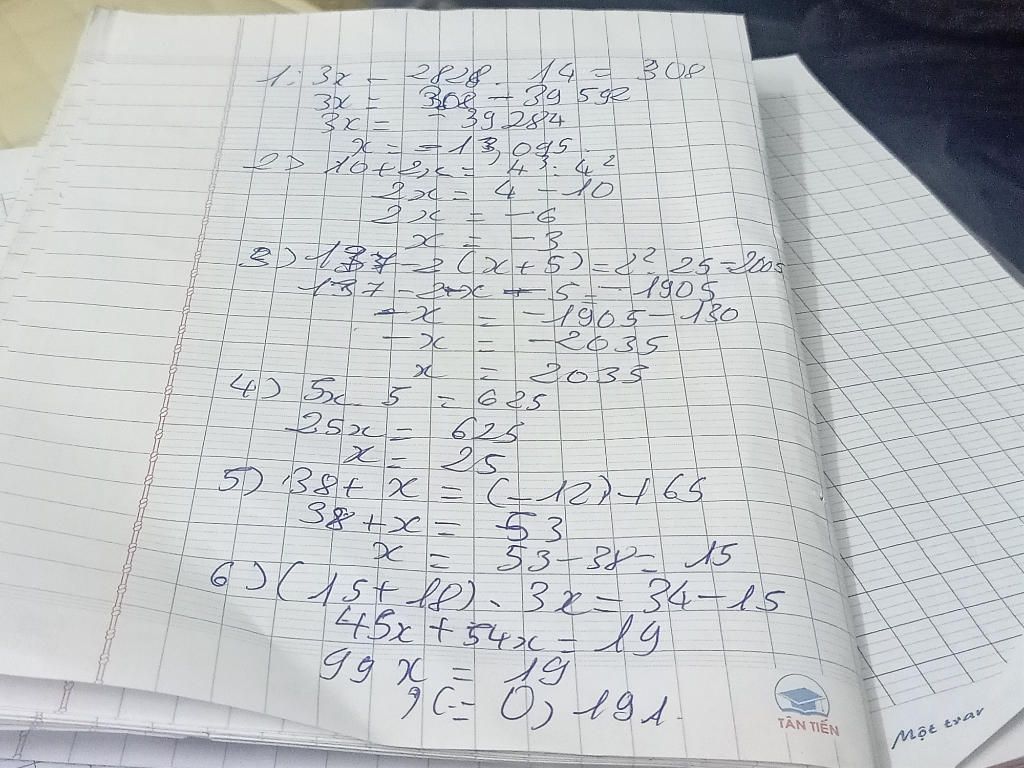 1: 3x - 2828. 14 = 308
3x = 308 - 39592
3x = - 39284
x = - 13,095.
2) 10 + 2x = 4³ : 4²
2x = 4 - 10
2x = - 6
x = - 3
3) 137 - 2 (x + 5) = 2² . 25 - 2005
137 - 2 - x - 5 = - 1905
- x = - 1905 - 130
- x = - 2035
x = 2035
4) 5x . 5 = 625
25x = 625
x = 25
5) 38 + x = (-12) + 65
38 + x = 53
x = 53 - 38 = 15
6) (15 + 18) . 3x = 34 - 15
45x + 54x = 19
99 x = 19
x = 0,191.
TÂN TIẾN
Một trar